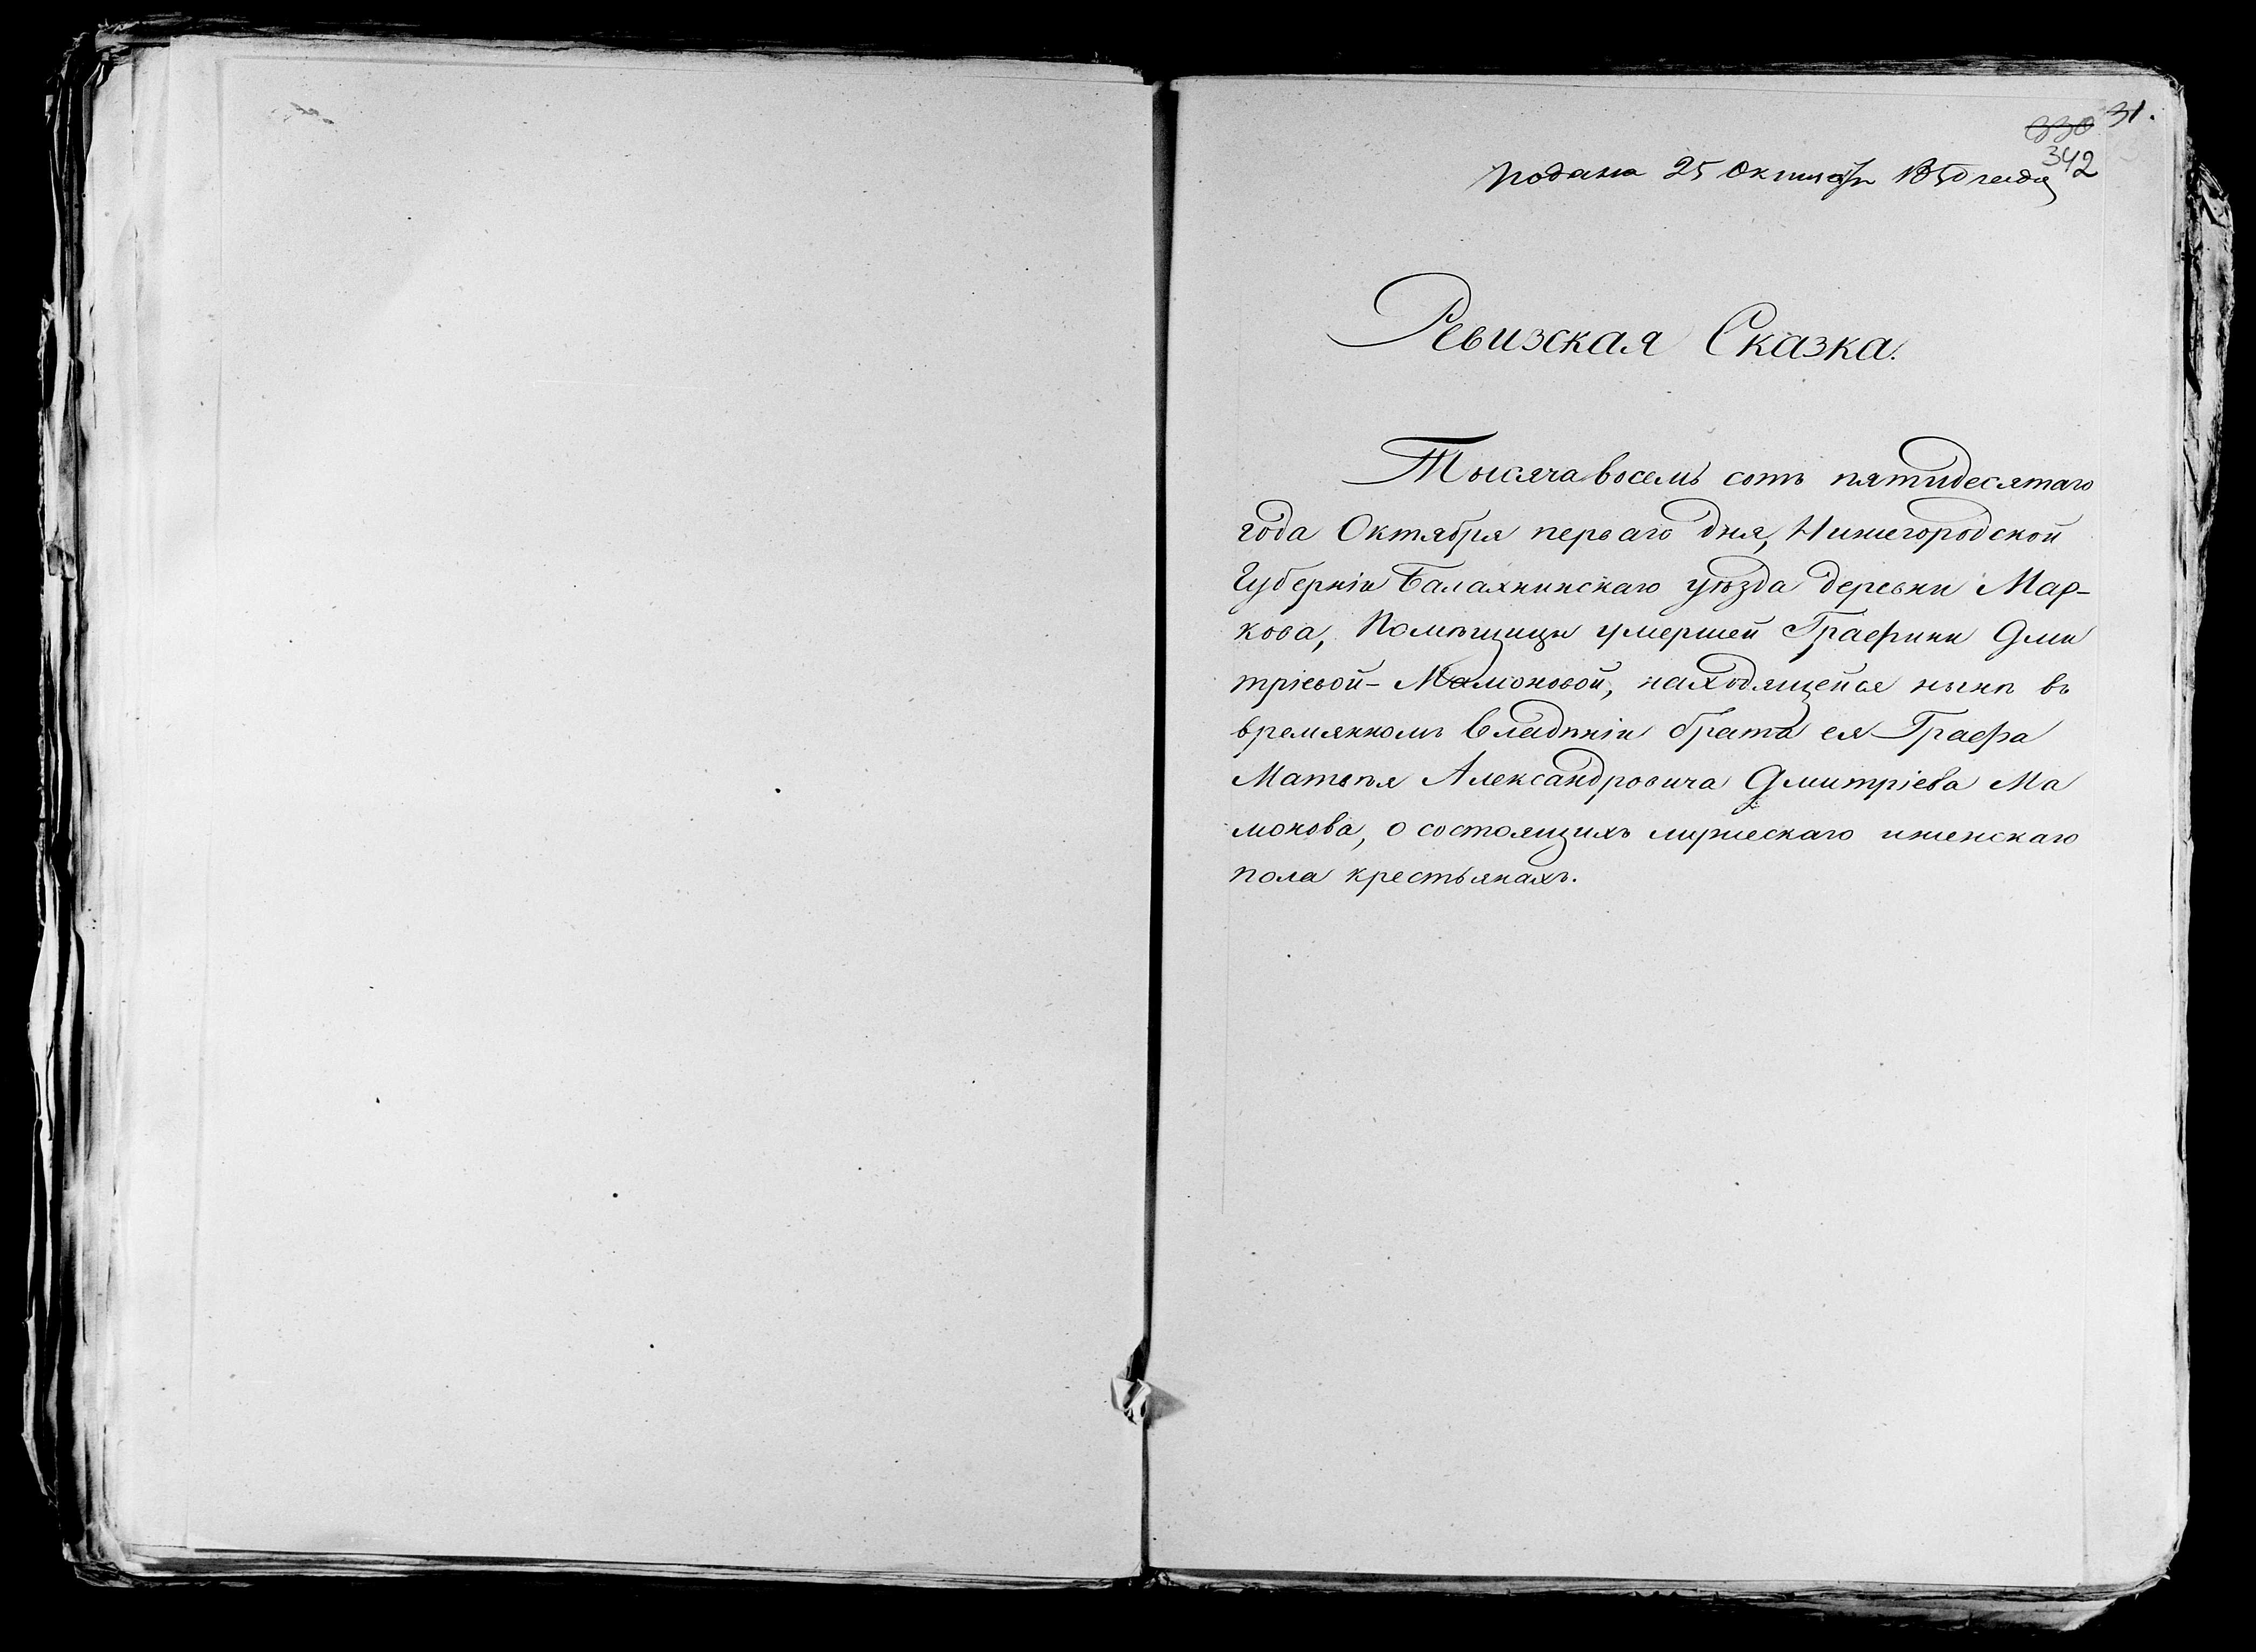 31.
330
342
подана 25 Октября 1850 года
Ревизская Сказка.
Тысяча восемь сотъ пятидесятаго
года Октября перваго дня, Нижегородской
Губерніи Балахнинскаго уѣзда деревни Мар-
кова, Помѣщицы умершей Графини Дми
тріевой-Мамоновой, находящейся нынѣ въ
времянномъ владѣніи брата ея Графа
Матвѣя Александровича Дмитріева Ма
монова, о состоящихъ мужескаго и женскаго
пола крестьянахъ.